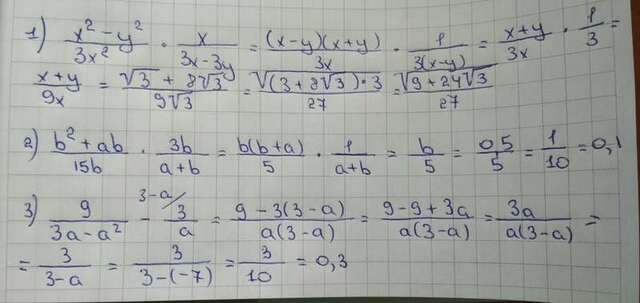 1) (x² - y²)/(3x²) · x/(3x - 3y) = ((x-y)(x+y))/(3x) · 1/(3(x-y)) = (x+y)/(3x) · 1/3 =
(x+y)/(9x) = (√3 + 8√3)/(9√3) = √((3+8√3)·3)/27 = √(9+24√3)/27
2) (b² + ab)/(15b) · 3b/(a+b) = (b(b+a))/5 · 1/(a+b) = b/5 = 0,5/5 = 1/10 = 0,1
3) 9/(3a - a²) - ³⁻ᵃ⁄ 3/a = (9 - 3(3-a))/(a(3-a)) = (9 - 9 + 3a)/(a(3-a)) = 3a/(a(3-a)) =
= 3/(3-a) = 3/(3-(-7)) = 3/10 = 0,3